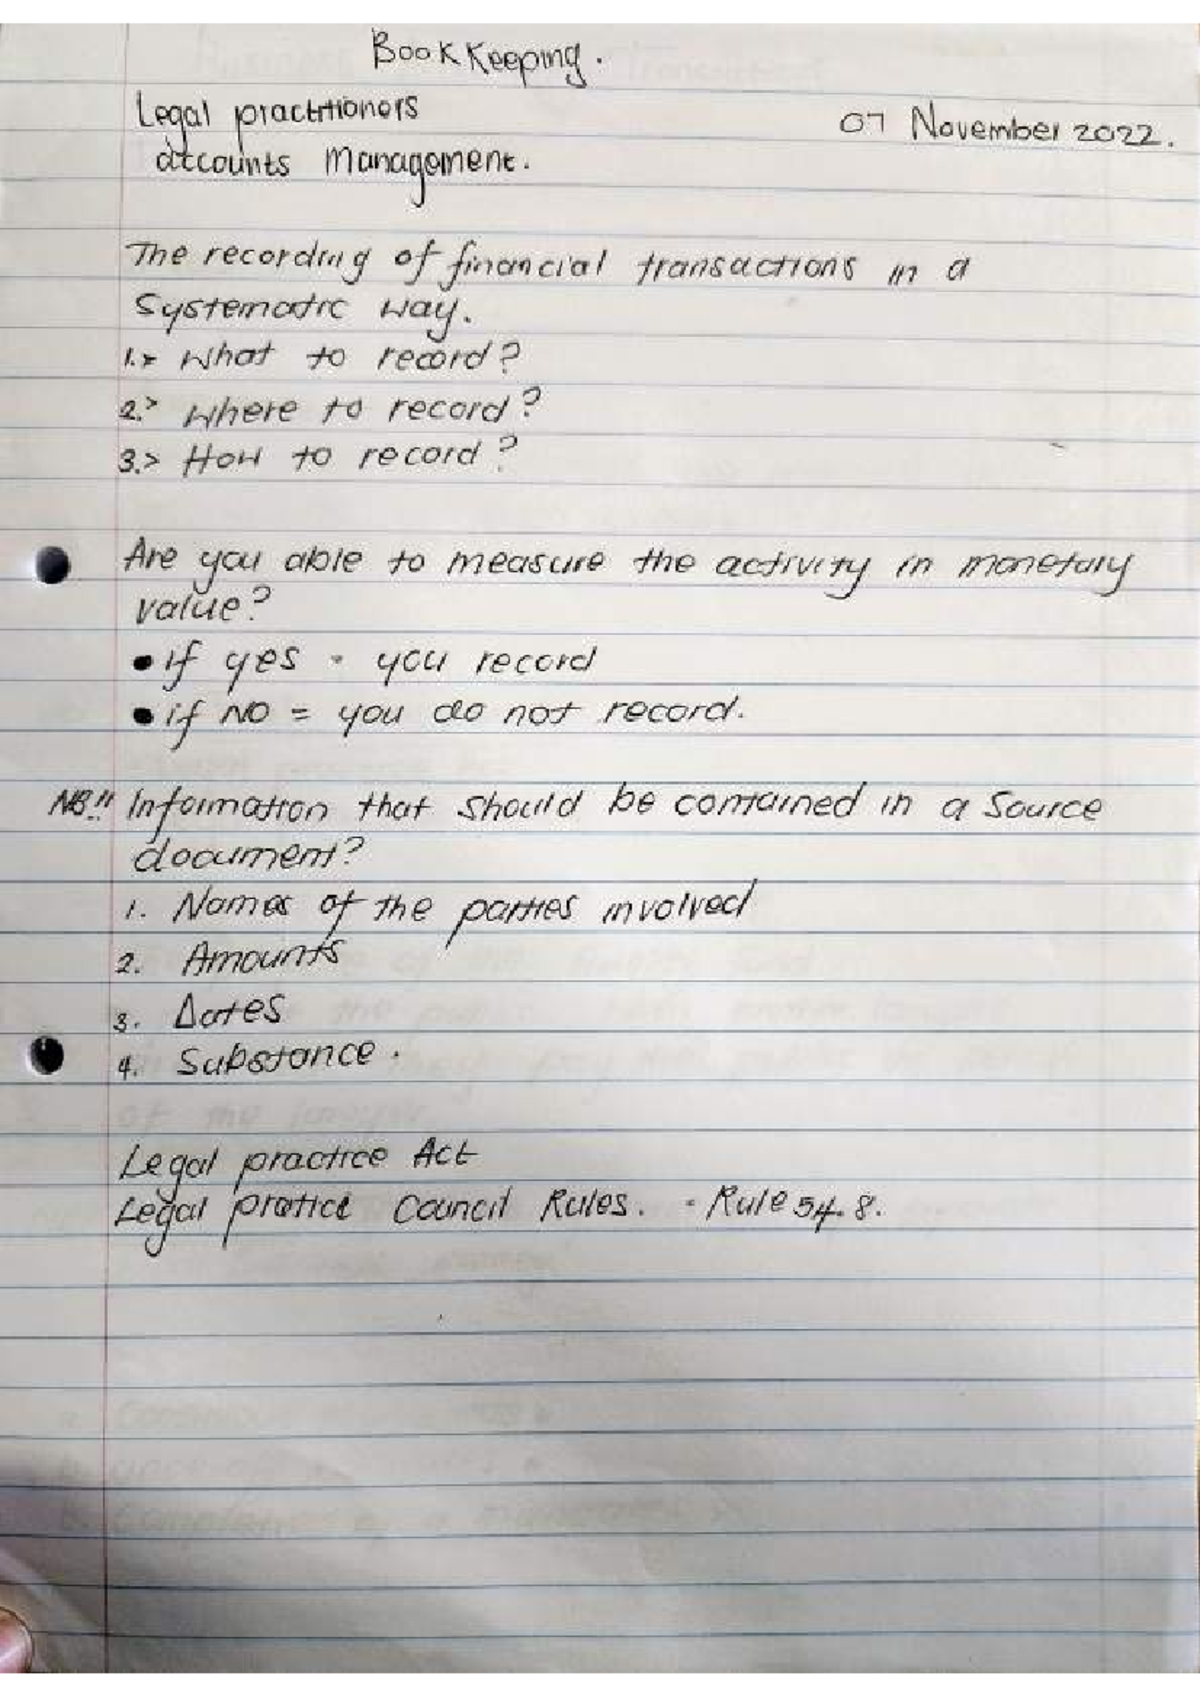 Book Keeping.
Legal practitioners
accounts Management.
07 November 2022.
The recording of financial transactions in a
Systematic way.
1.> What to record?
2.> Where to record?
3.> How to record?
Are you able to measure the activity in monetary
value?
• if yes - you record
• if NO = you do not record.
NB!! Information that should be contained in a Source
document?
1. Names of the parties involved
2. Amounts
3. Dates
4. Substance.
Legal practice Act
Legal pratice Council Rules. - Rule 54.8.